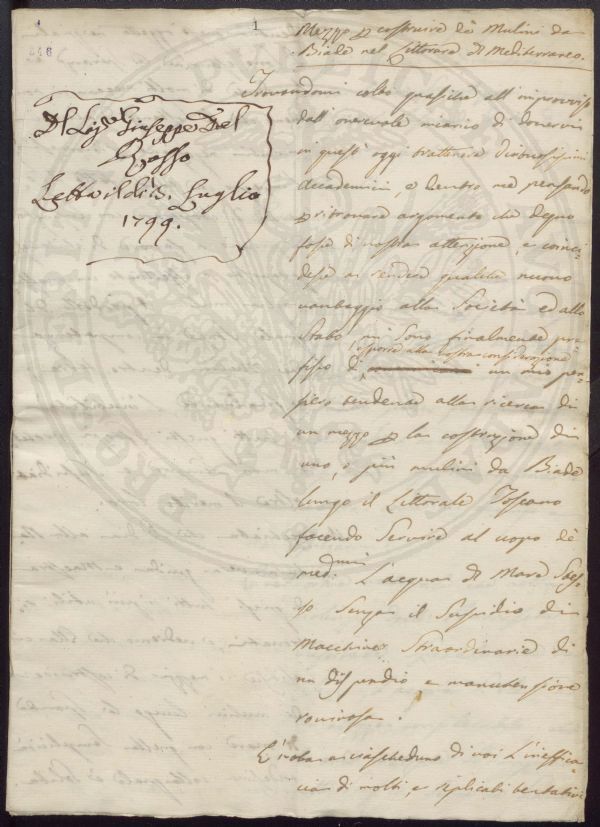 1
448
1
Mezzo p costruire de Mulini da
Biade nel Littorare di Mediterraneo.
Del Sigre Giuseppe Del
Rosso
Letta il dì 3. Luglio
1799.
Trovandomi colto quasichè all'improvviso
dall'onorevole incarico di dovervi
in quest'oggi trattenere
Accademici, e dentro me pensando
p ritrovare argomento che degno
fosse di vostra attenzione, e coinci-
desse a rendere qualche nuovo
vantaggio alla Società ed allo
Stato, mi sono finalmente pre-
esporre alla vostra considerazione
fisso di un mio pen-
siero tendente alla ricerca di
un mezzo p la costruzione di
uno, o più mulini da Biade
lungo il Littorale Toscano
facendo servire al uopo de
medmi L'acqua di Mare Stes-
so senza il sussidio di
Macchine straordinarie di
un dispendio e manutenzione
rovinosa.
È nota a ciascheduno di voi L'ineffica-
cia di molti, e replicati tentativi